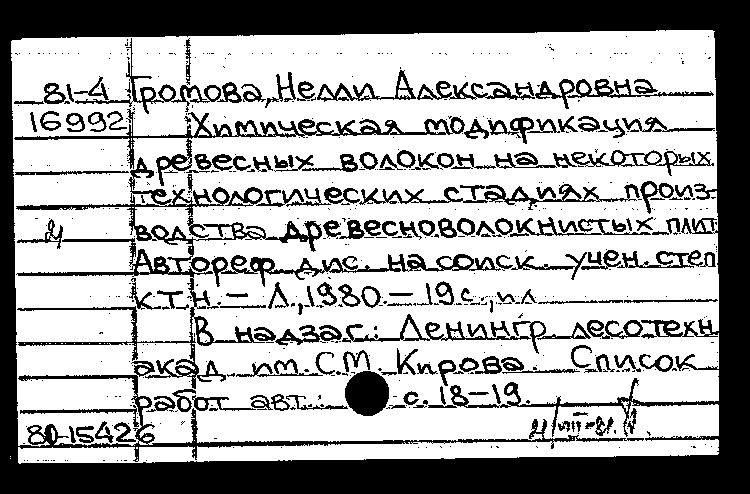 81-4 Громова, Нелли Александровна
16992 Химическая модификация
древесных волокон на некоторых
технологических стадиях произ-
водства древесноволокнистых плит
Автореф. дис. на соиск. учен. степ
к.т.н. – Л., 1980. – 19 с., ил
В надзаг.: Ленингр. лесотехн.
акад. им. С.М. Кирова. Список
работ авт.: с. 18-19.
80-15426